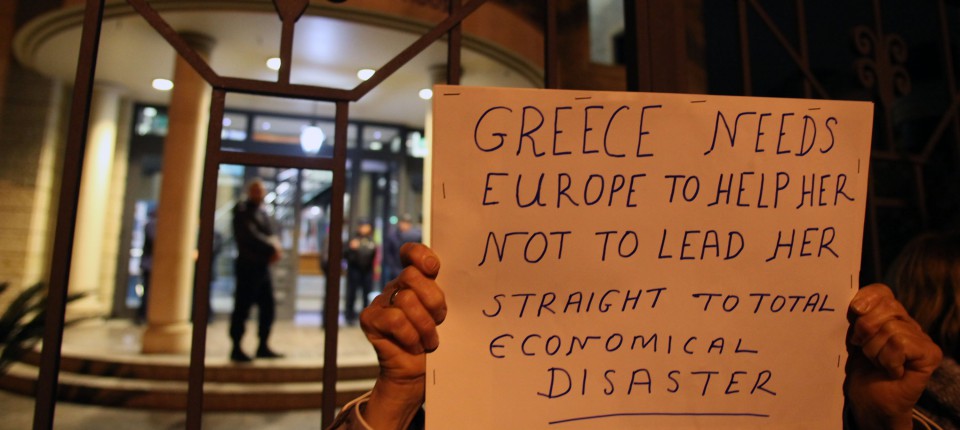 GREECE NEEDS
EUROPE TO HELP HER
NOT TO LEAD HER
STRAIGHT TO TOTAL
ECONOMICAL
DISASTER